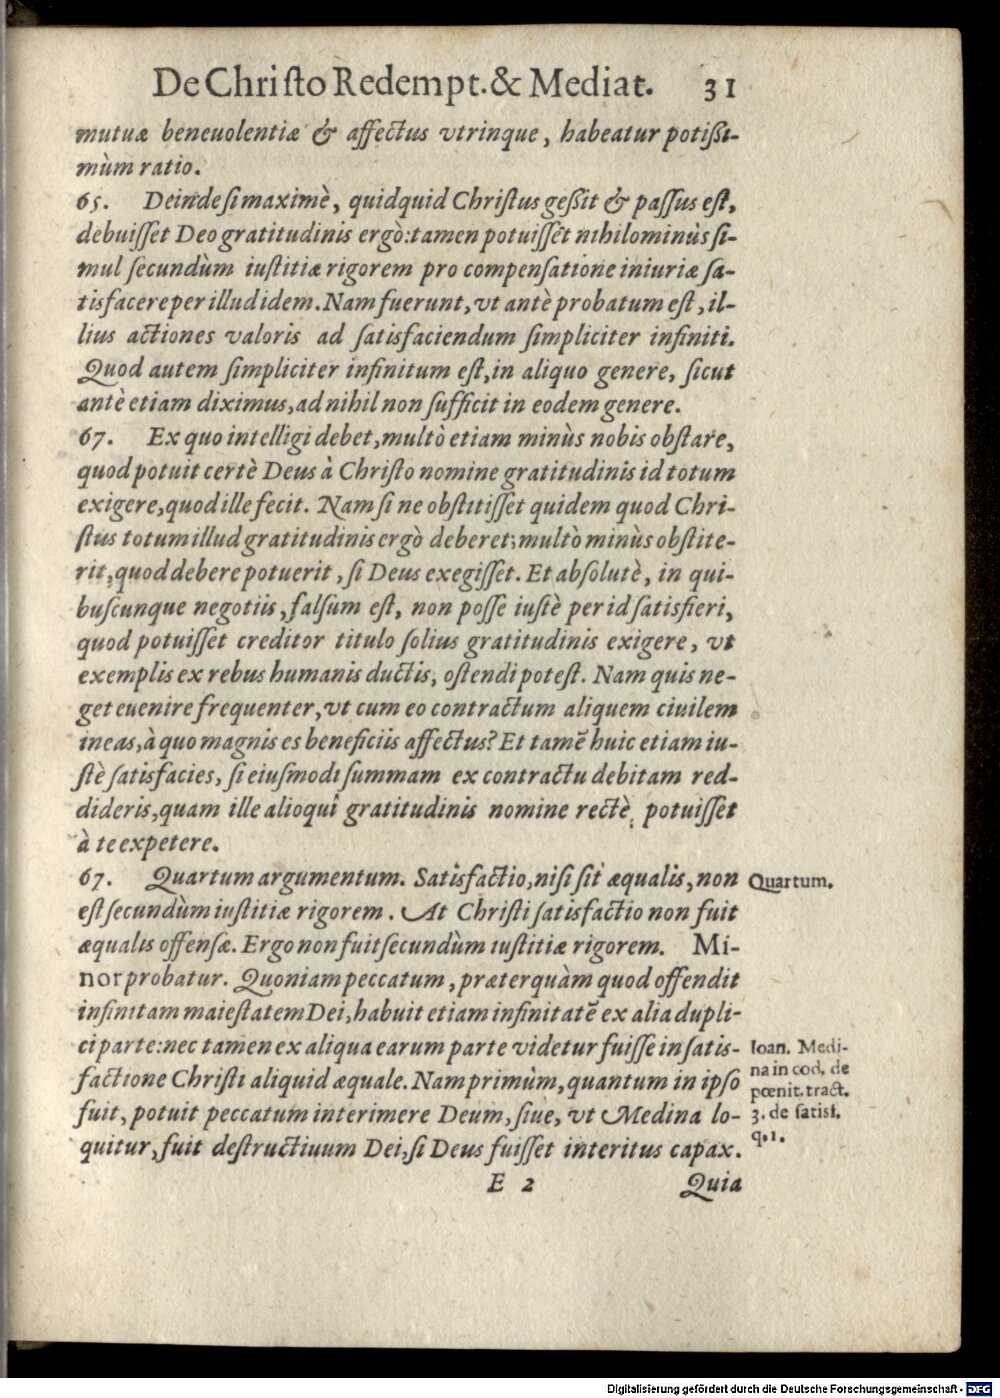 De Christo Redempt. & Mediat. 31
mutuæ beneuolentiæ & affectus vtrinque, habeatur potißi-
mùm ratio.
65. Deinde si maximè, quidquid Christus geßit & passus est,
debuisset Deo gratitudinis ergò: tamen potuisset nihilominùs si-
mul secundùm iustitiæ rigorem pro compensatione iniuriæ sa-
tisfacere per illud idem. Nam fuerunt, vt antè probatum est, il-
lius actiones valoris ad satisfaciendum simpliciter infiniti.
Quod autem simpliciter infinitum est, in aliquo genere, sicut
antè etiam diximus, ad nihil non sufficit in eodem genere.
67. Ex quo intelligi debet, multò etiam minùs nobis obstare,
quod potuit certè Deus à Christo nomine gratitudinis id totum
exigere, quod ille fecit. Nam si ne obstitisset quidem quod Chri-
stus totum illud gratitudinis ergò deberet; multò minùs obstite-
rit, quod debere potuerit, si Deus exegisset. Et absolutè, in qui-
buscunque negotiis, falsum est, non posse iustè per id satisfieri,
quod potuisset creditor titulo solius gratitudinis exigere, vt
exemplis ex rebus humanis ductis, ostendi potest. Nam quis ne-
get euenire frequenter, vt cum eo contractum aliquem ciuilem
ineas, à quo magnis es beneficiis affectus? Et tamē huic etiam iu-
stè satisfacies, si eiusmodi summam ex contractu debitam red-
dideris, quam ille alioqui gratitudinis nomine rectè potuisset
à te expetere.
67. Quartum argumentum. Satisfactio, nisi sit æqualis, non
est secundùm iustitiæ rigorem. At Christi satisfactio non fuit
æqualis offensæ. Ergo non fuit secundùm iustitiæ rigorem. Mi-
nor probatur. Quoniam peccatum, præterquàm quod offendit
infinitam maiestatem Dei, habuit etiam infinitatē ex alia dupli-
ci parte: nec tamen ex aliqua earum parte videtur fuisse in satis-
factione Christi aliquid æquale. Nam primùm, quantum in ipso
fuit, potuit peccatum interimere Deum, siue, vt Medina lo-
quitur, fuit destructiuum Dei, si Deus fuisset interitus capax.
E 2 Quia
Quartum.
Ioan. Medi-
na in cod. de
pœnit. tract.
3. de satisf.
q. 1.
Digitalisierung gefördert durch die Deutsche Forschungsgemeinschaft - DFG